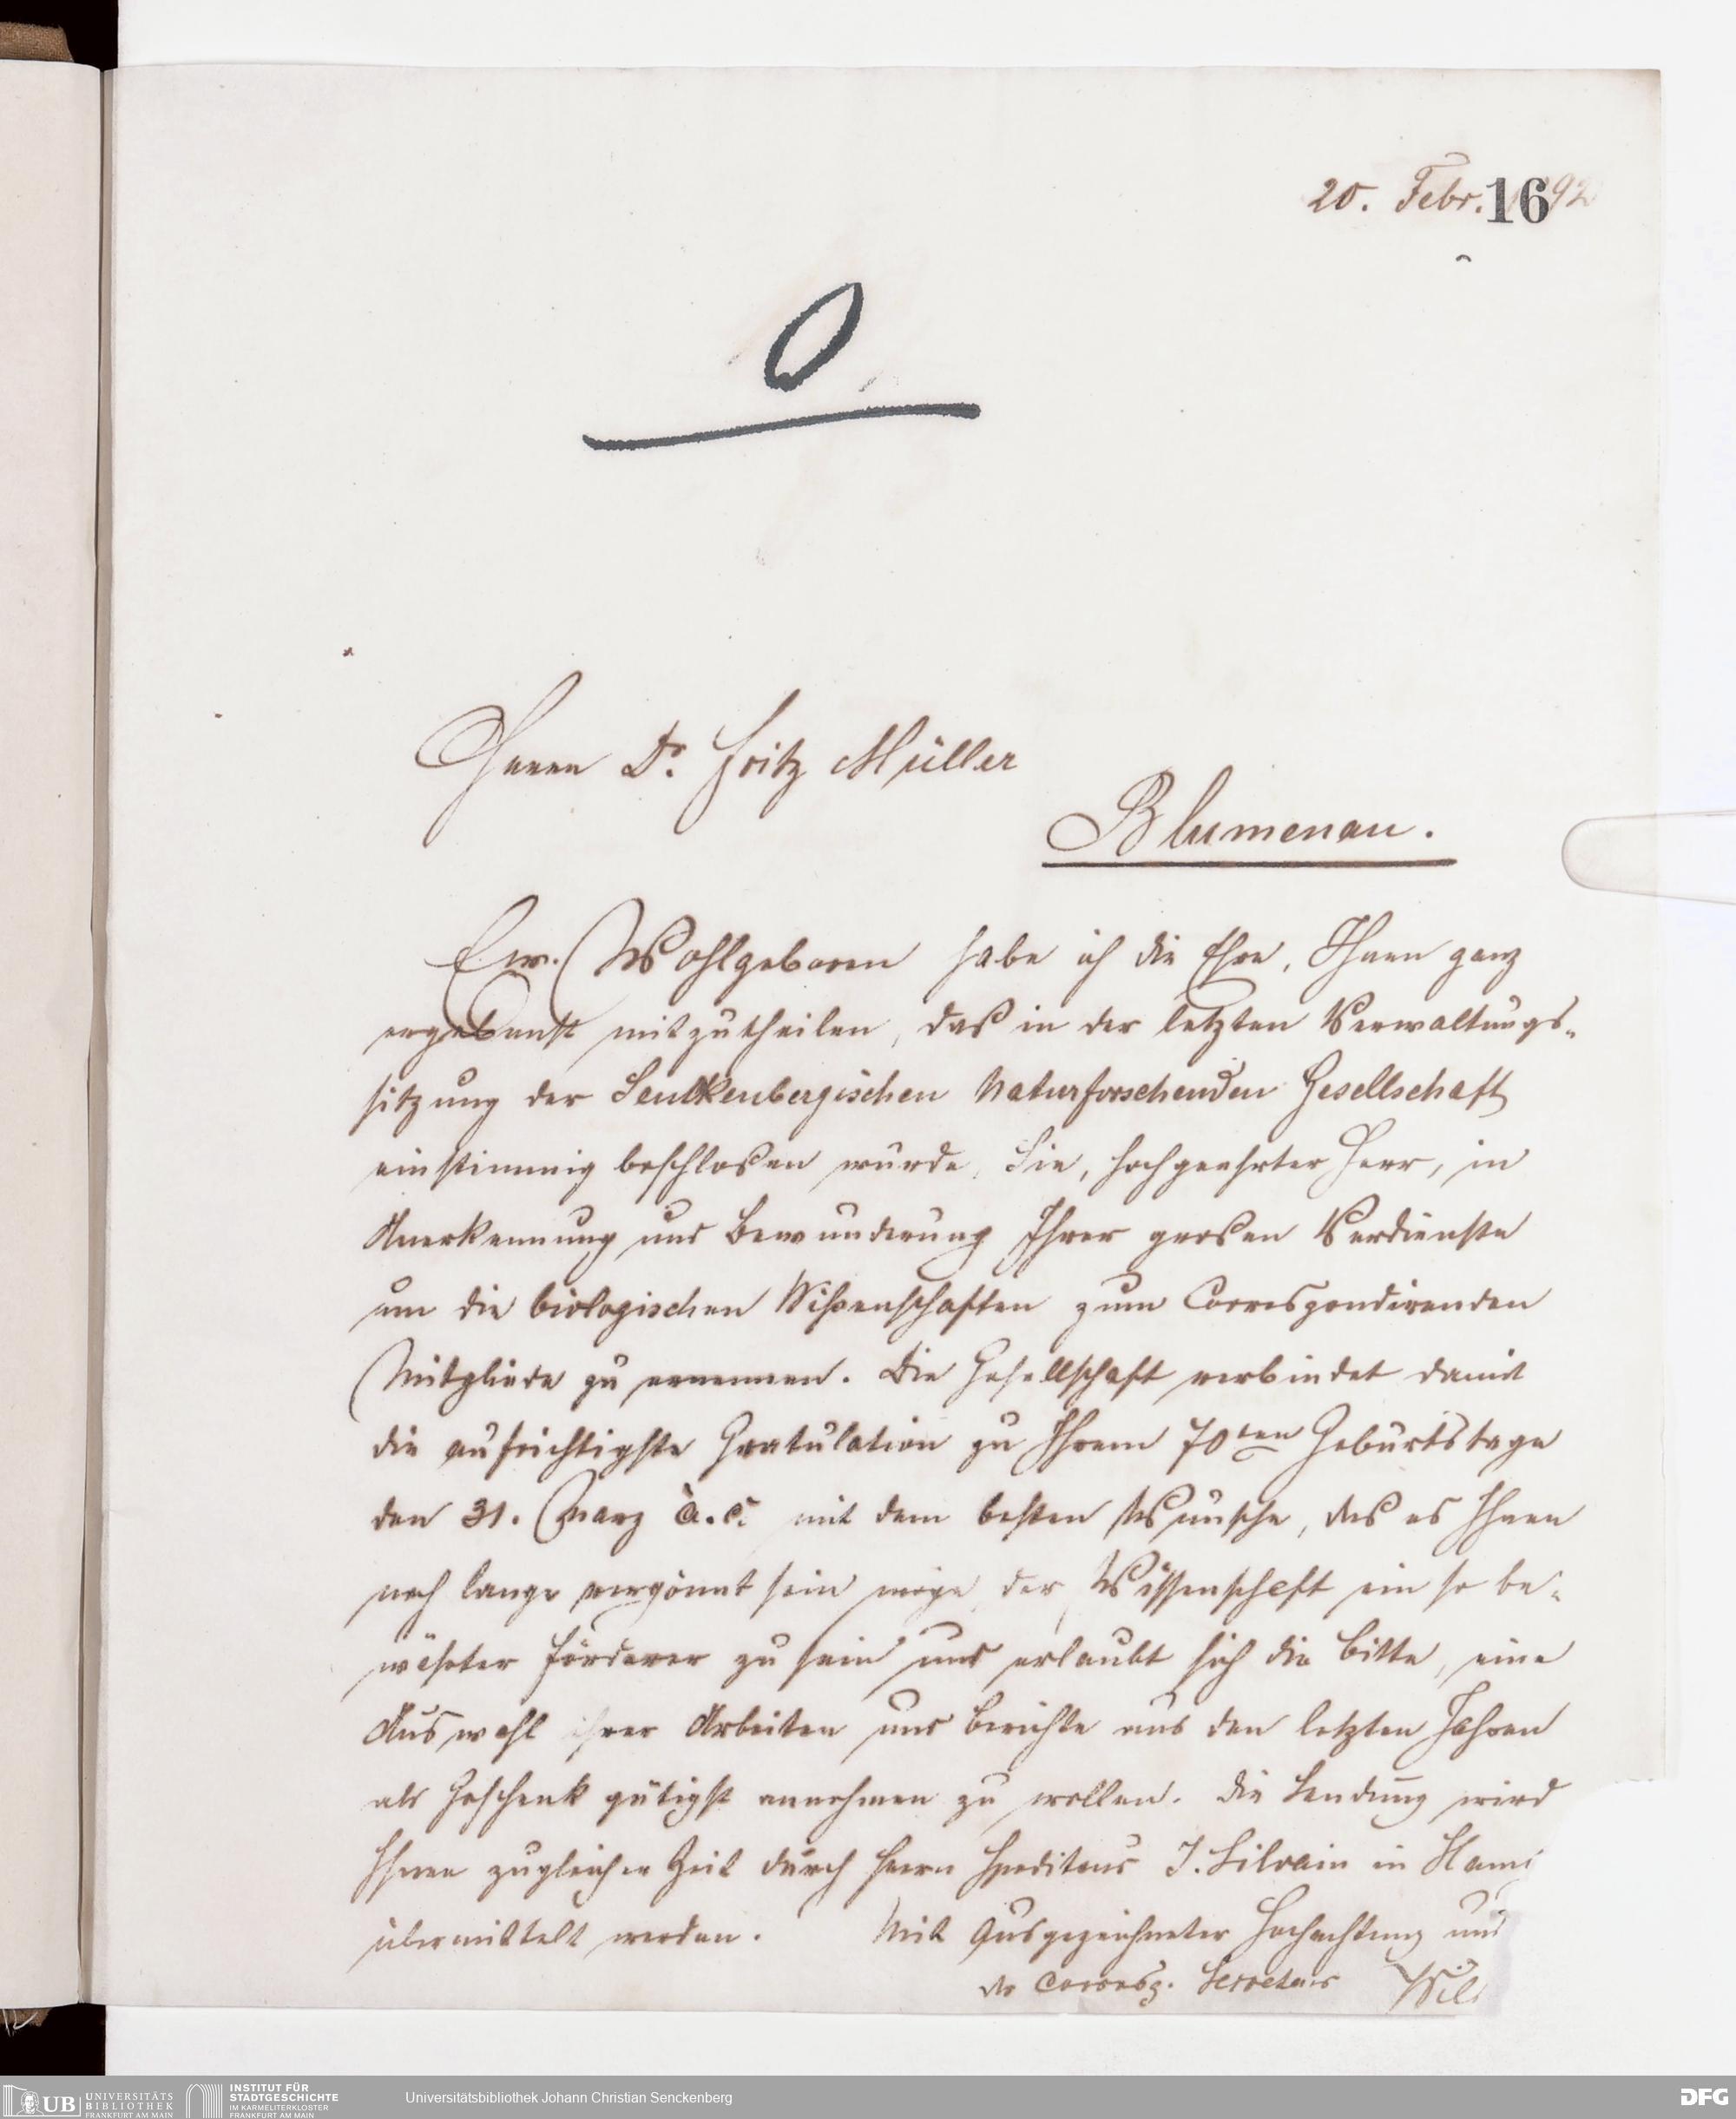 20. Febr. 1692
0
Herrn Dr. Fritz Müller
Blumenau.
Ew. Wohlgeboren habe ich die Ehre, Ihnen ganz
ergebenst mitzutheilen, daß in der letzten Verwaltungs-
sitzung der Senckenbergischen Naturforschenden Gesellschaft
einstimmig beschloßen wurde, Sie, hochgeehrter Herr, in
Anerkennung und Bewunderung Ihrer großen Verdienste
um die biologischen Wißenschaften zum Correspondirenden
Mitgliede zu ernennen. Die Gesellschaft verbindet damit
die aufrichtigste Gratulation zu Ihrem 70ten Geburtstage
den 31. Marz a. c. mit dem besten Wunsche, daß es Ihnen
noch lange vergönnt sein möge, der Wissenschaft ein so be-
währter Förderer zu sein und erlaubt sich die Bitte, eine
Auswahl ihrer Arbeiten und Berichte aus den letzten Jahren
als Geschenk gütigst annehmen zu wollen. Die Sendung wird
Ihnen zugleicher Zeit durch Herrn Spediteur J. Silvain in Ham
übermittelt werden. Mit Ausgezeichneter Hochachtung und
der Corresp. Secretair
UB UNIVERSITÄTS
BIBLIOTHEK
FRANKFURT AM MAIN
INSTITUT FÜR
STADTGESCHICHTE
IM KARMELITERKLOSTER
FRANKFURT AM MAIN
Universitätsbibliothek Johann Christian Senckenberg
DFG